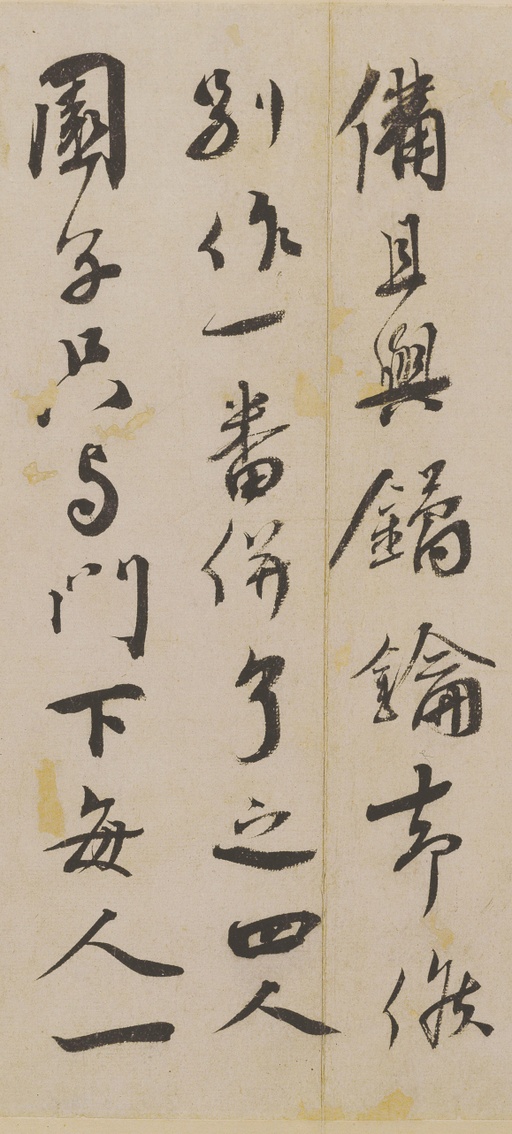 備且與鐍鑰却候
別作一番併了之四人
園子只与門下每人一